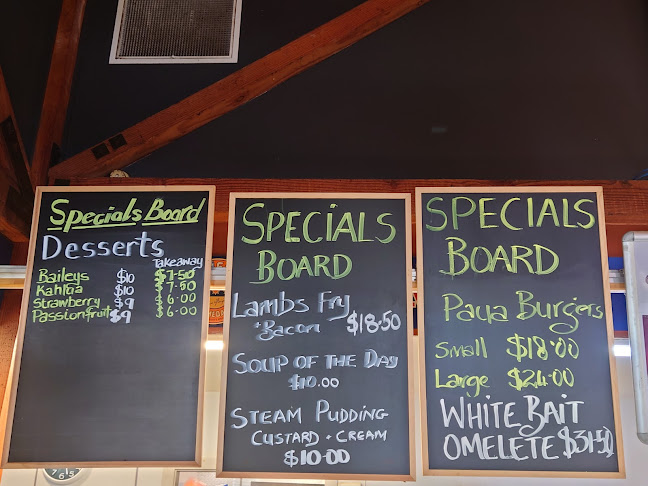 Specials Board
Desserts
Takeaway
Baileys $10 $7.50
Kahlua $10 $7.50
Strawberry $9 $6.00
Passionfruit $9 $6.00
SPECIALS
BOARD
Lambs Fry
+ Bacon $18.50
SOUP OF THE DAY
$10.00
STEAM PUDDING
CUSTARD + CREAM
$10.00
SPECIALS
BOARD
Paua Burgers
Small $18.00
Large $24.00
WHITE BAIT
OMELETE $31.50